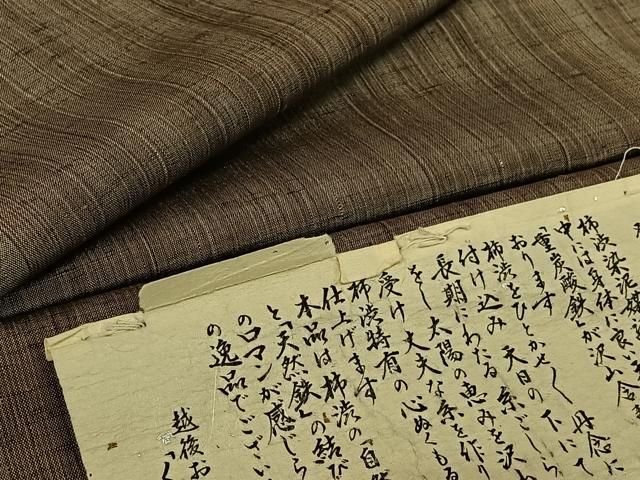 柿渋染泥染
中には身体に良い
「重炭酸鉄」が沢山含
おります
柿渋をひとかせく 丹念に
付け込み 天日の下にて
長期にわたる 糸ぐしら
をし 太陽の恵みを沢
受け 丈夫な糸を作り
柿渋特有の心ぬくもる
仕上げます
本品は 柿渋の「自然
と「天然鉄」の結び
のロマンが感じら
の逸品でござい
越後お
「く